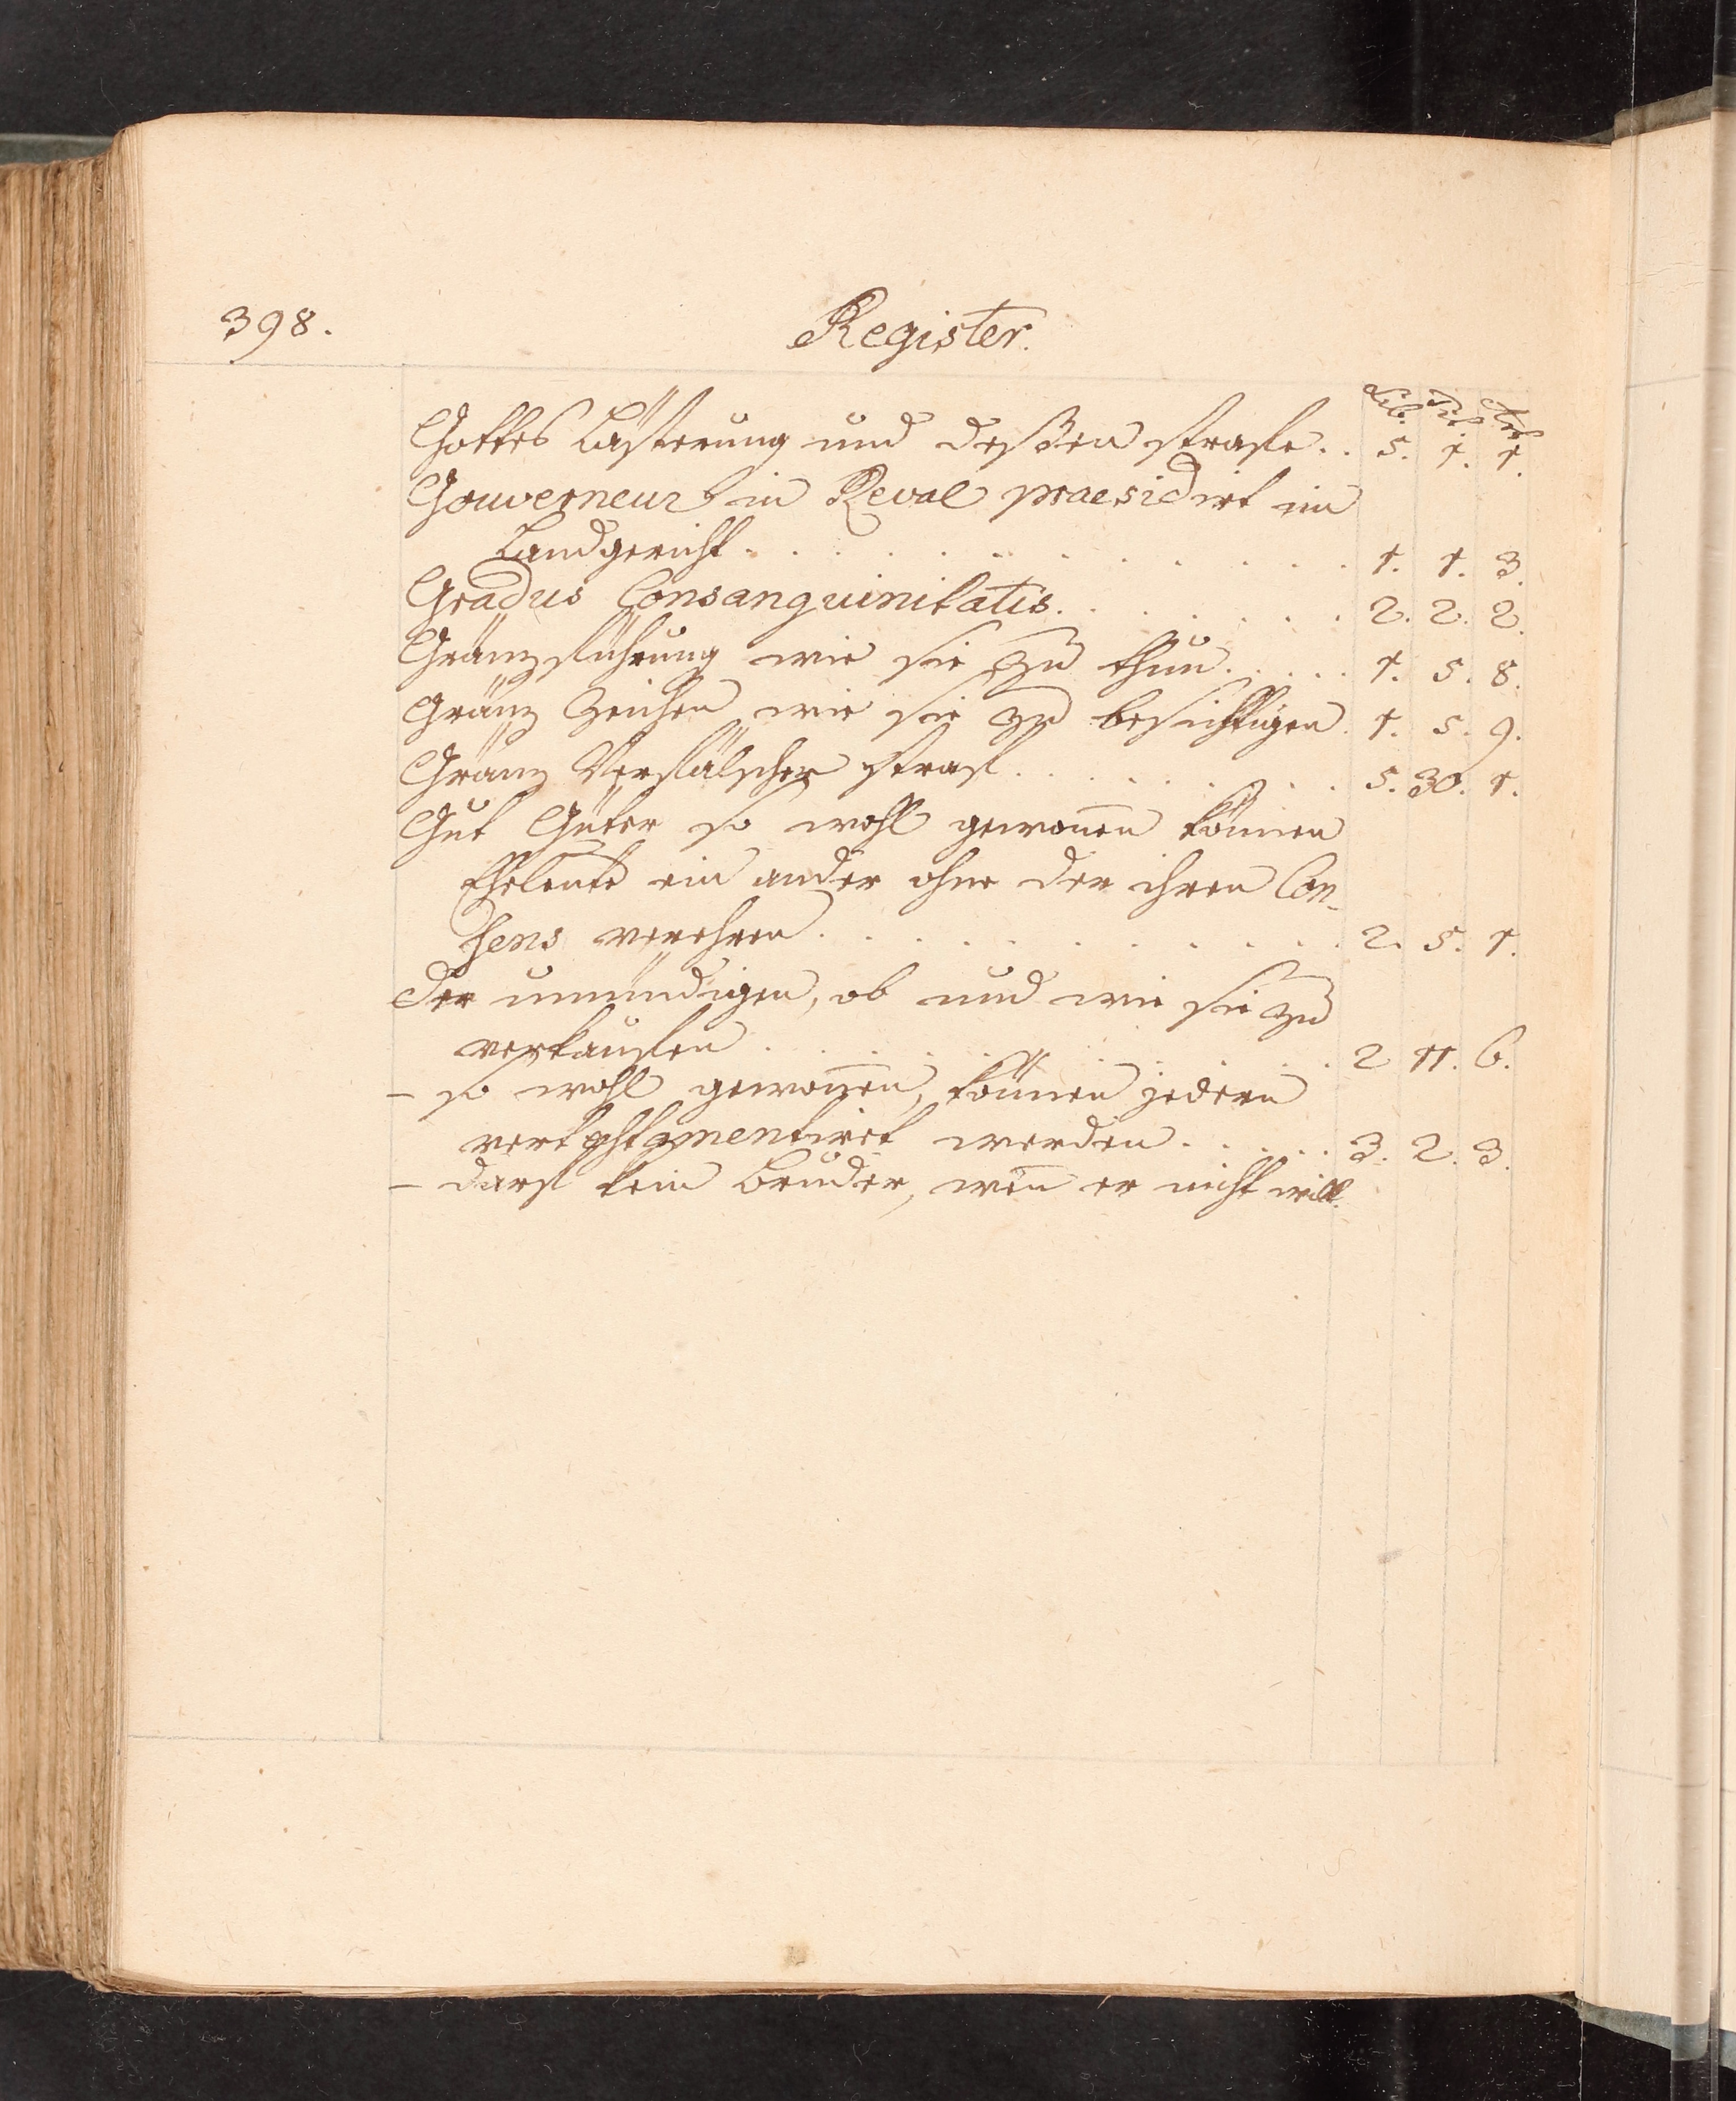 398.
Register.
Lib. Tit. Art.
Gottes Lästerung und deßen strafe . . 5. 1. 1.
Gouverneur in Reval praesidirt im
Landgericht . . . . . . . . . . . 1. 1. 3.
Gradus Consanguinitatis . . . . . . 2. 2. 2.
Gränzführung wie sie zu thun . . . . . 1. 5. 8.
Gränz Zeichen wie sie zu besichtigen . 1. 5. 9.
Gränz Verfälscher straf . . . . . . . . 5. 30. 1.
Gut Güter so wohl gewonen können
Eheleute ein ander ohne der ihren Con-
sens verehren . . . . . . . . . . 2. 5. 1.
der unmündigen, ob und wie sie zu
verkaufen . . . . . . . . . . . 2 11. 6.
– so wohl gewonen, können jedem
vertestamentiret werden . . . . . 3. 2. 3.
– darf kein Bruder, wen er nicht will.